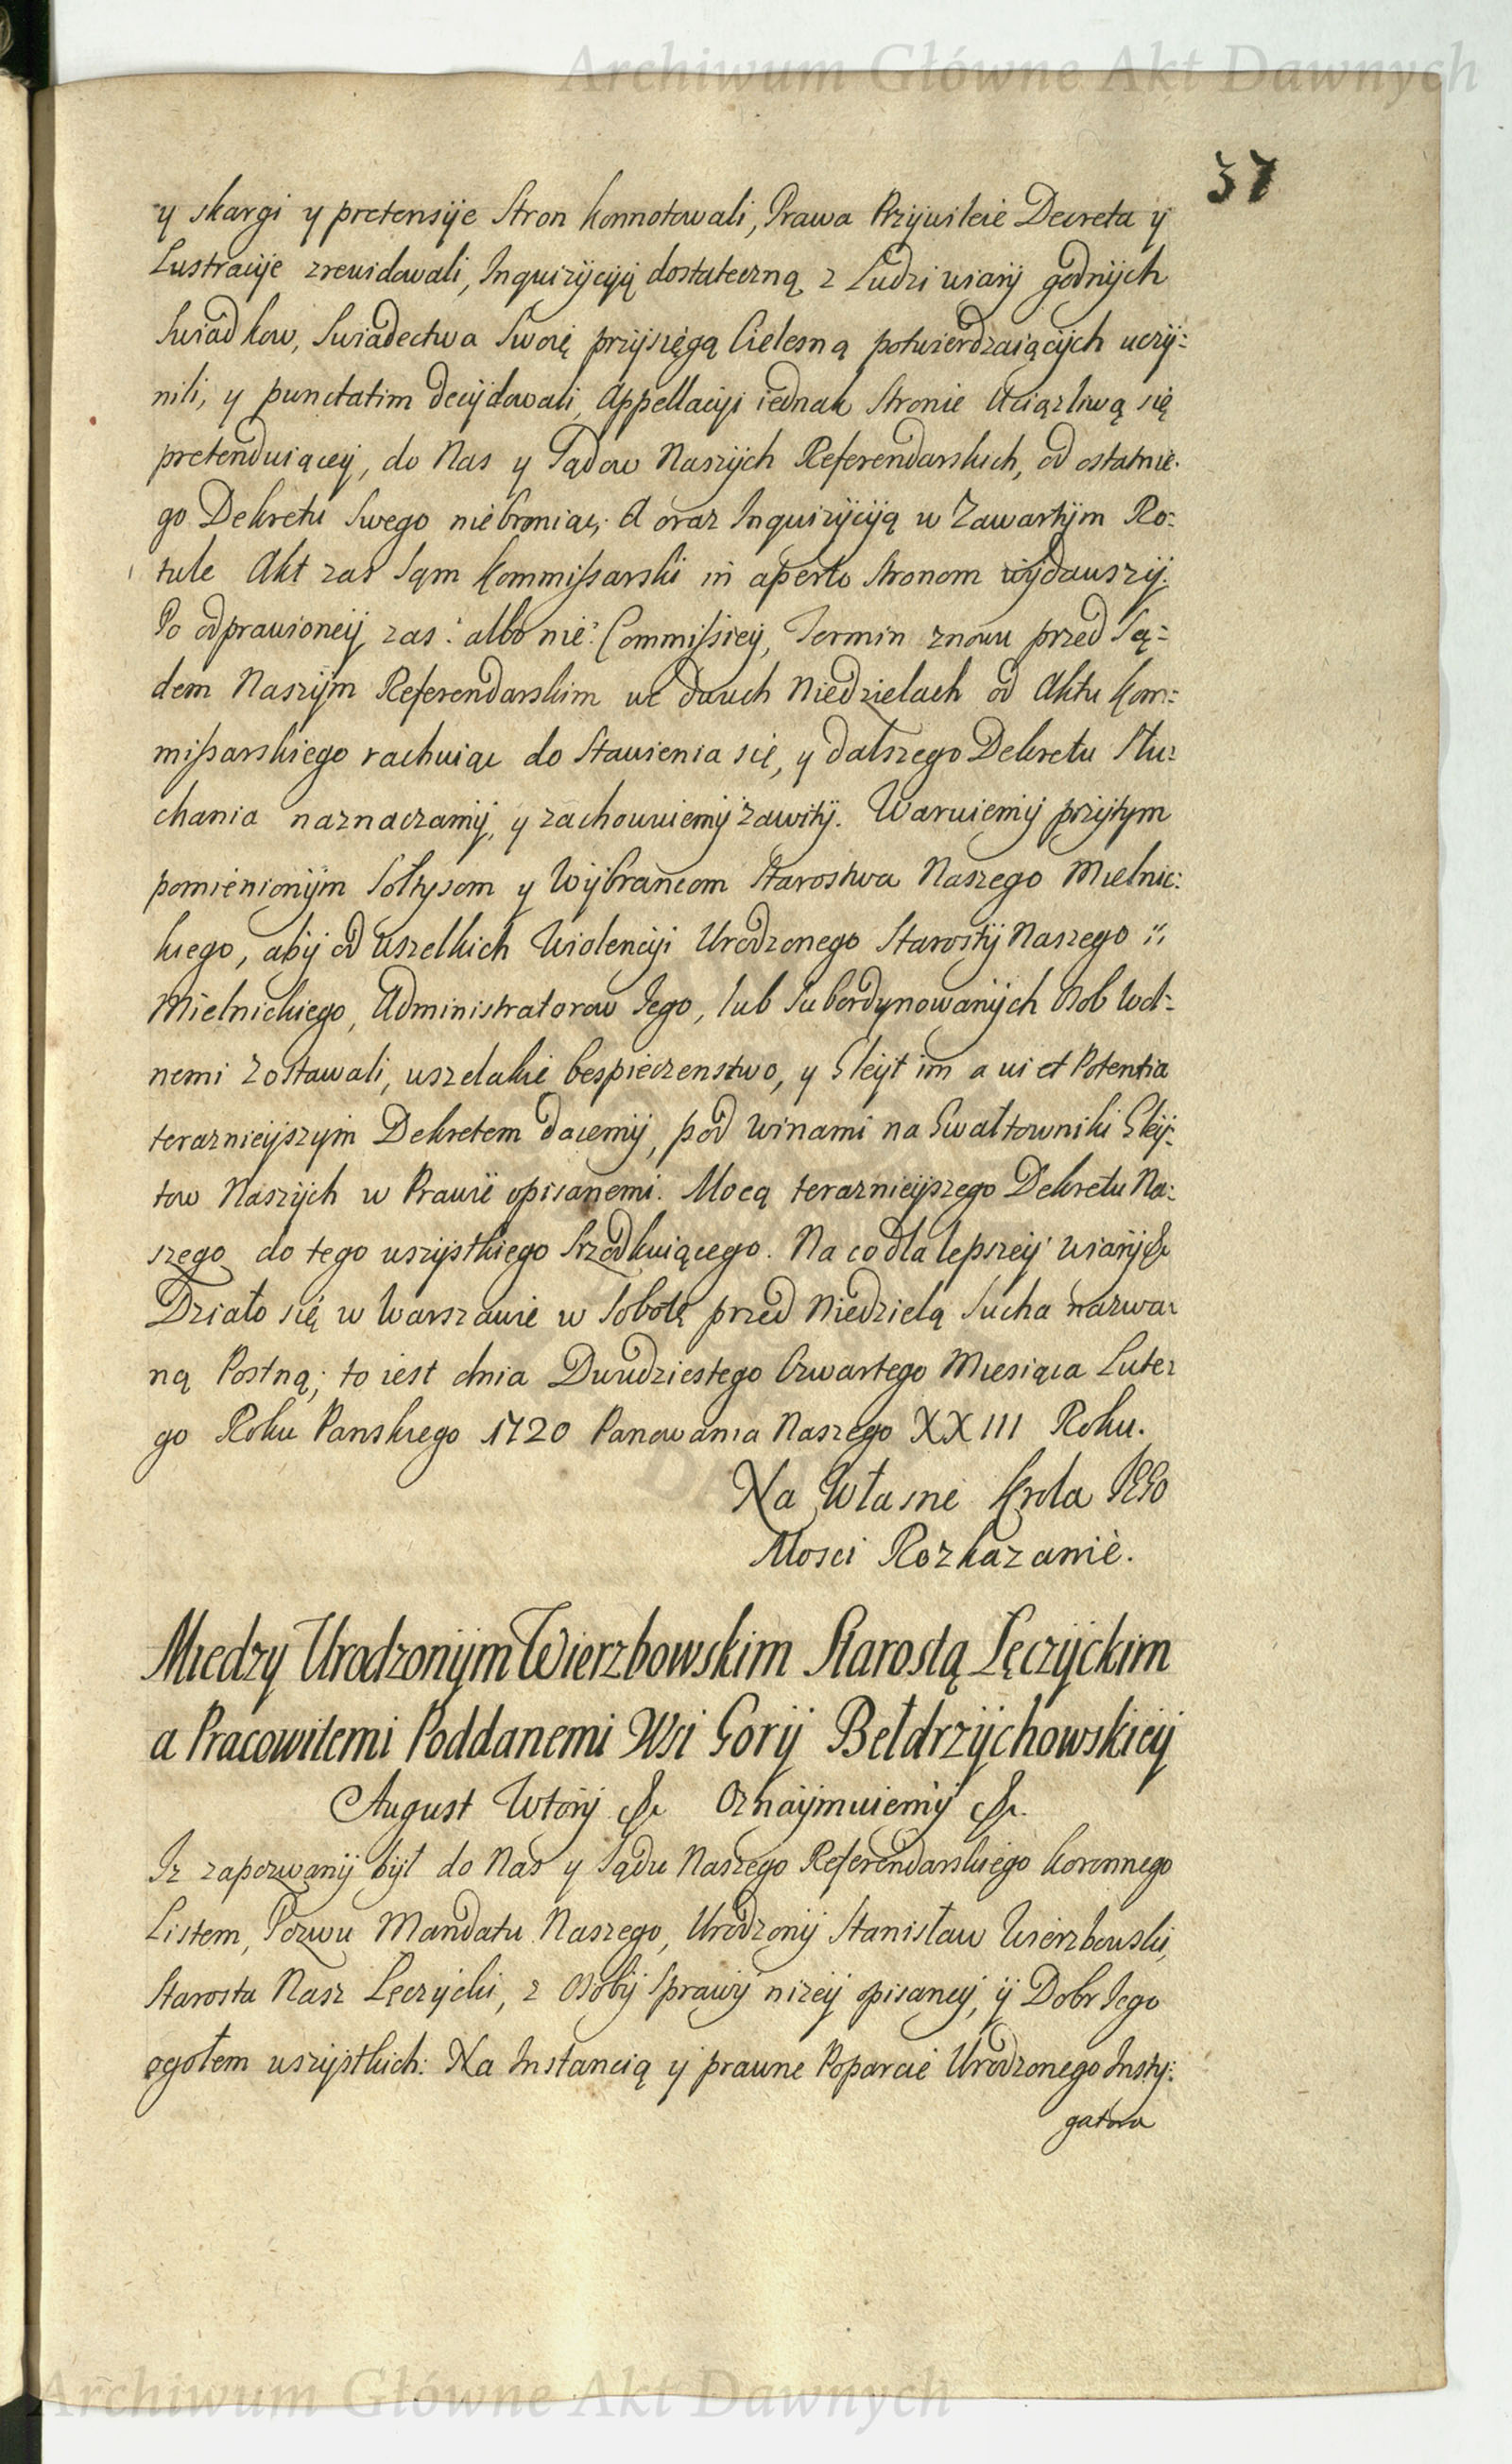 Archiwum Główne Akt Dawnych
37
y skargi y pretensije Stron konnotowali, Prawa Przijwileie Decreta y
Lustracije zrewidowali, Inquizijciją dostateczną z Ludzi wiarij godnijch
Swiadkow, Swiadectwa Swoię przijsięgą Cielesną potwierdzaiącijch uczij:
nili, y punctatim decijdowali, Appellaciji iednak Stronie Uciążliwą się
pretenduiąceij, do Nas y Sądow Naszijch Referendarskich, od ostatnie:
go Dekretu Swego niebroniąc; A oraz Inquizijciją w Zawartijm Ro:
tule Akt zas Sąm Kommissarski in aperto Stronom wijdawszij.
Po odprawioneij zas: albo nie: Commissieij, Termin znowu przed Są:
dem Naszijm Referendarskim we dwuch Niedzielach od Aktu Kom:
missarskiego rachuiąc do Stawienia się, y dalszego Dekretu Słu:
chania naznaczamij, y zachowuiemij zawitij. Waruiemij przijtym
pomienionijm Sołtysom y Wijbrancom Starostwa Naszego Mielnic:
kiego, abij od wszelkich Wiolenciji Urodzonego Starostij Naszego :/:
Mielnickiego, Administratorow Iego, lub Subordynowanijch Osob Wol:
nemi Zostawali, wszelakie bespieczenstwo, y Gleijt im a vi et Potentia
teraznieijszym Dekretem daiemij, pod winami na Gwałtowniki Gleij:
tow Naszijch w Prawie opisanemi. Mocą teraznieijszego Dekretu Na:
szego do tego wszijstkiego Srzodkuiącego. Na co dla lepszeij wiarij &
Działo się w Warszawie w Sobotę przed Niedzielą Sucha nazwa:
ną Postną; to iest dnia Dwudziestego Czwartego Miesiąca Lute:
go Roku Panskiego 1720 Panowania Naszego XXIII Roku.
Na Własne Krola IEGO
Mosci Rozkazanie.
Miedzy Urodzonijm Wierzbowskim Starostą Łęczijckim
a Pracowitemi Poddanemi Wsi Gorij Bełdrzijchowskieij
August Wtorij & Oznaijmuiemij &.
Iz zapozwanij bijł do Nas y Sądu Naszego Referendarskiego Koronnego
Listem, Pozwu Mandatu Naszego, Urodzonij Stanisław Wierzbowski,
Starosta Nasz Łęczijcki, z Osobij Sprawij nizeij opisaneij, ij Dobr Iego
ogołem wszijstkich: Na Instancią ij prawne Poparcie Urodzonego Insty:
gatora
Archiwum Główne Akt Dawnych